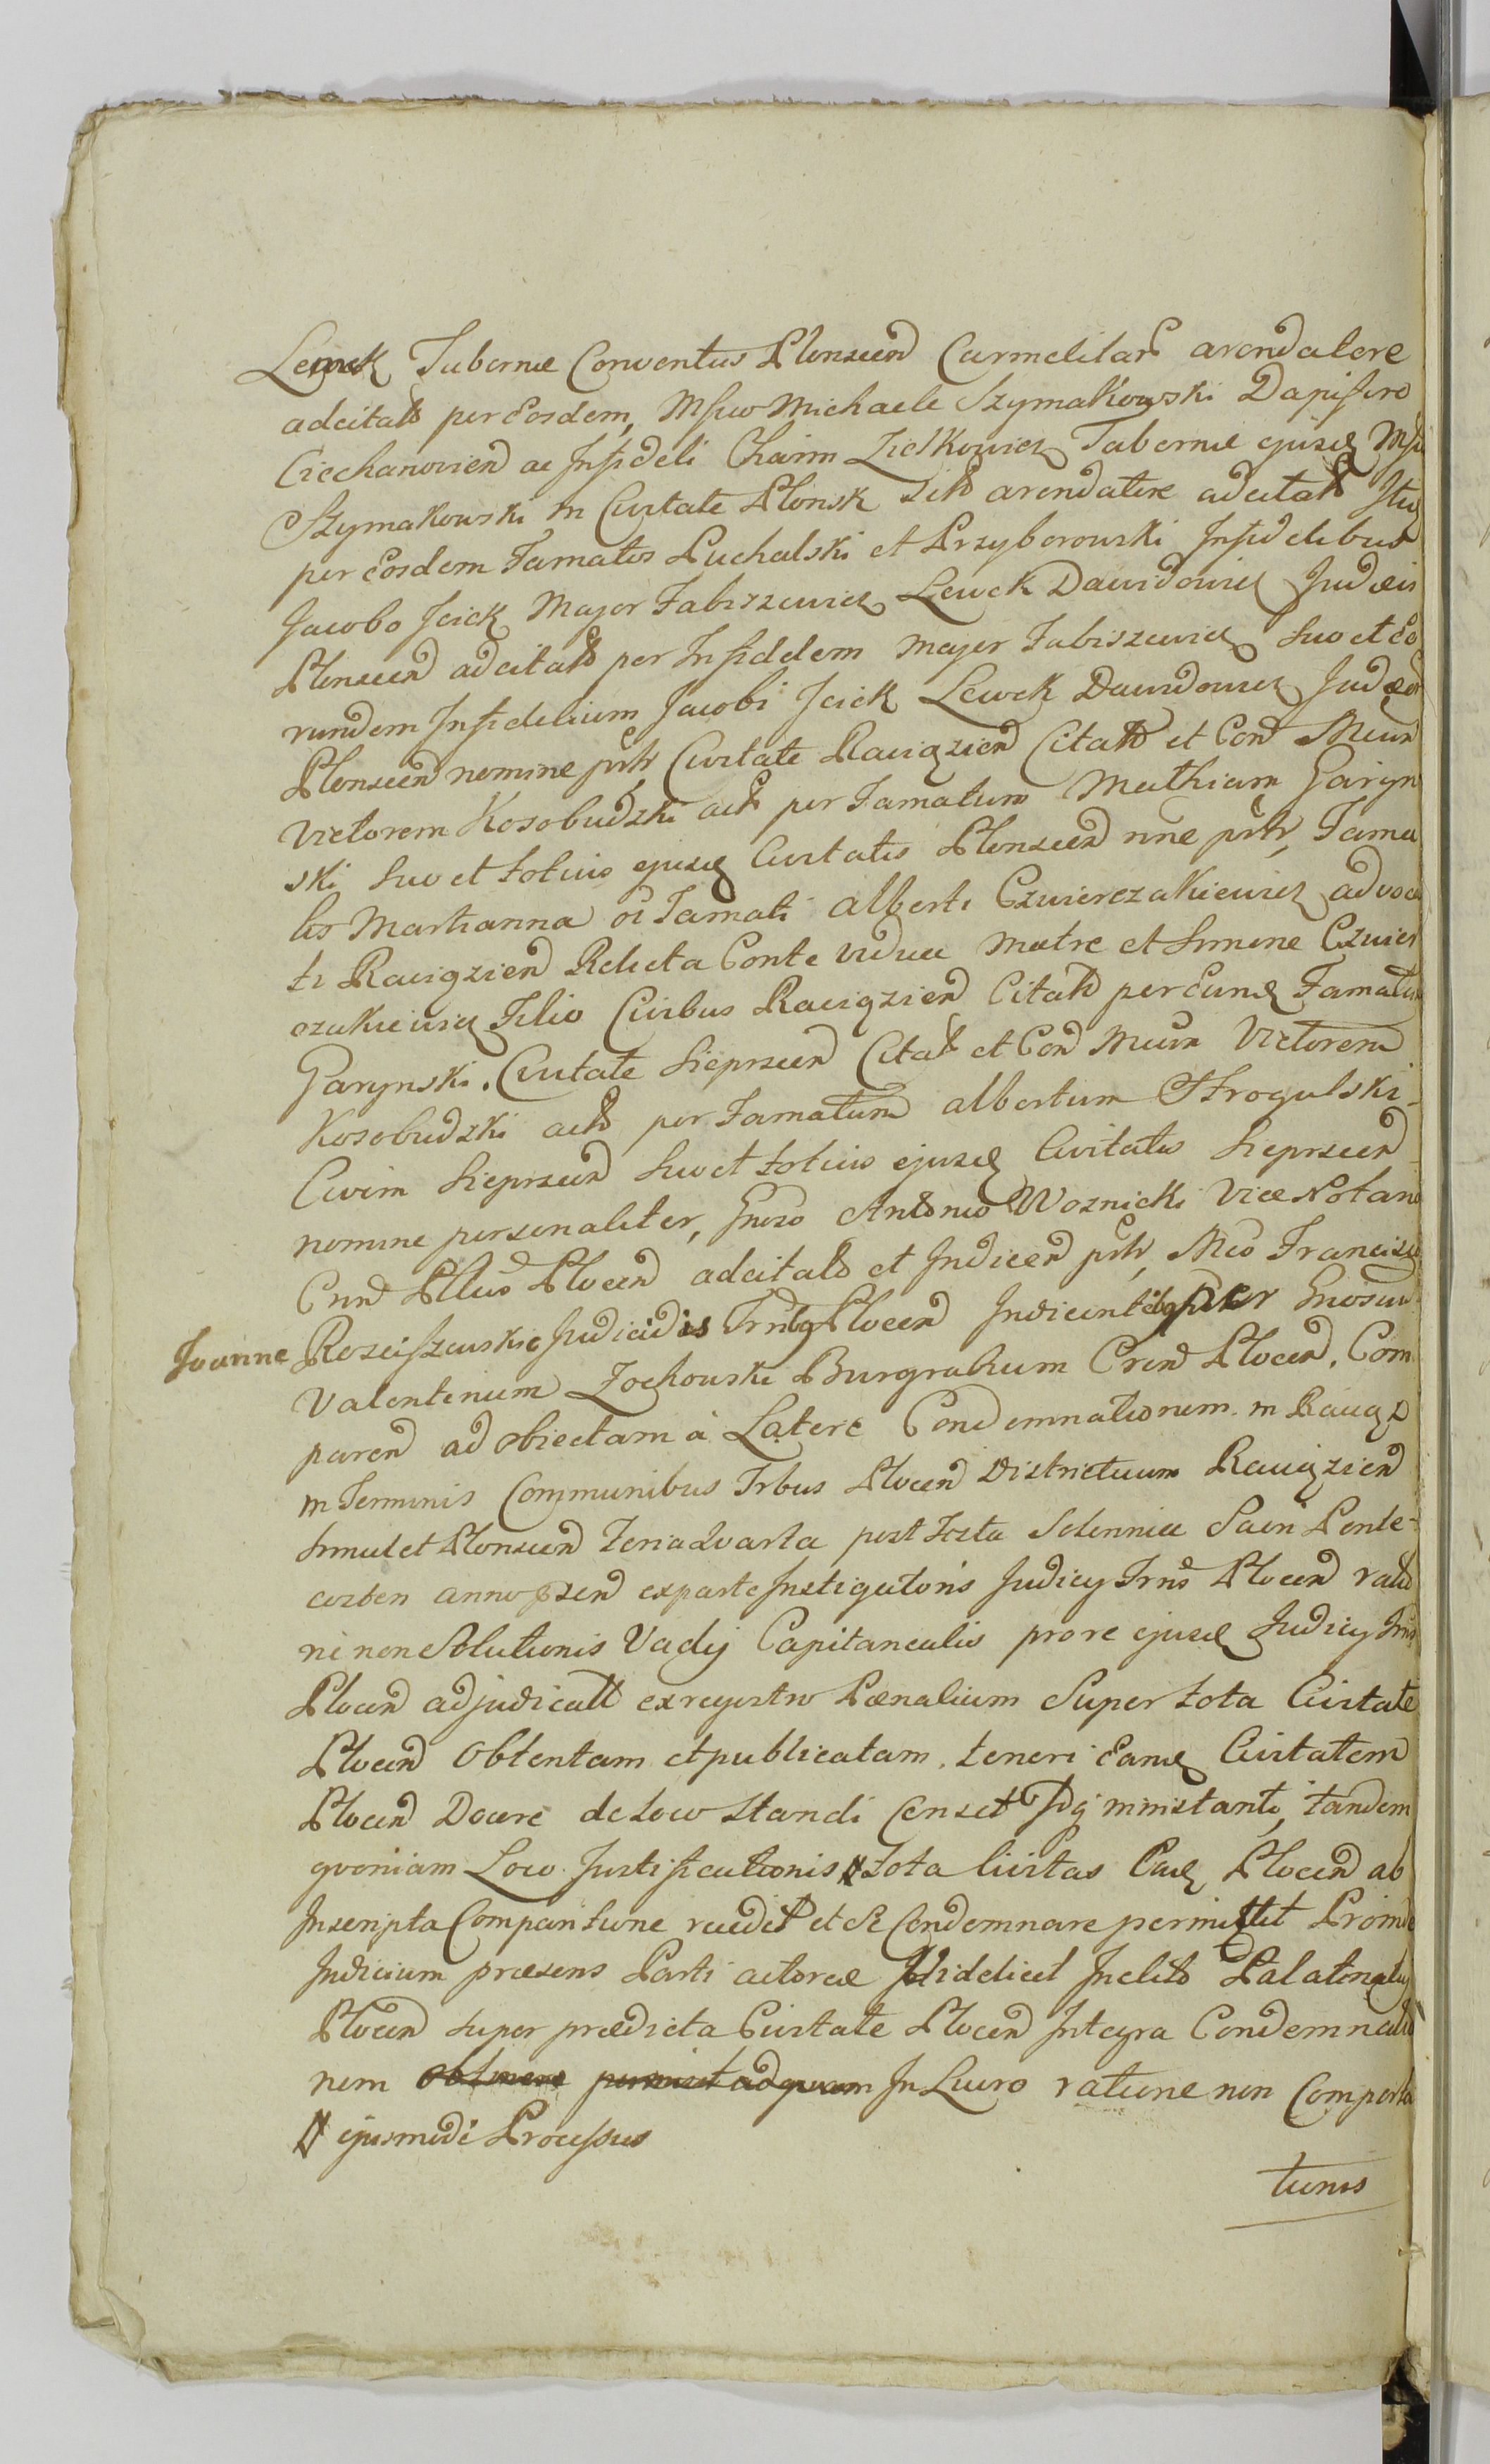 Lewek Tabernæ Conventus Plonscen Carmelitar arendatore
adcitato per Eosdem, Mfico Michaele Szymakowski Dapifero
Ciechanovien ac Infideli Chaim Zielkowicz Tabernæ ejusd Mfi
Szymakowski in Civitate Plonsk sito arendatore adcitato Itq
per Eosdem Famatos Puchalski et Przyborowski Infidelibus
Jacobo Icick Majer Fabiszewicz Lewek Dawidowicz Judæis
Plonscen adcitato per Infidelem Majer Fabiszewicz suo et Eo
rundem Infidelium Jacobi Icick Lewek Dawidowicz Judæor
Plonscen nomine prtr Civitate Raciązien Citato et Con Mcum
Victorem Kosobudzki acto per Famatum Mathiam Garyn
ski suo et totius ejusd Civitatis Plonscen nne prtr, Fama
tis Marianna oi Famati Alberti Czwierczakiewicz advoca
ti Raciązien Relicta Conte vidua Matre et Simone Czwier
czakiewicz Filio Civibus Raciązien Citato per Eund Famatu
Garynski. Civitate Sieprscen Citat et Con Mcum Victorem
Kosobudzki acto per Famatum Albertum Strogulski
Civem Sieprscen suo et totius ejusd Civitatis Sieprscen
nomine personaliter, Gnoso Antonio Woznicki Vice Notario
Cnn Pltus Plocen adcitato et Indicen prtr, Mco Francisco
Joanne Rosciszewski Judicidis Trnlq Plocen Indicente per Gnosum
Valentinum Zochowski Burgrabium Cren Plocen. Com
paren ad obiectam à Latere Condemnationem in Raciąz
in Terminis Communibus Trbus Plocen Districtuum Raciązien
simul et Plonscen Feria Quarta post Festa Solennia Sacri Pente-
costen anno psen ex parte Instigatoris Judicij Trns Plocen ratio
ne non Solutionis Vadij Capitanealis pro re ejusd Judicij Trns
Plocen adjudicati ex regestro Pænalium Super tota Civitate
Plocen Obtentam et publicatam. teneri Eand Civitatem
Plocen Docere de Loco standi Censet Idq ministante, tandem
quoniam Loco Justificationis # tota Civitas Ead Plocen ab
Inscripta Comparitione recedit et se Condemnare permittit Proinde
Judicium præsens Parti actoreæ Videlicet Inclito Palatinatui
Plocen super prædicta Civitate Plocen Integra Condemnatio
nem obtinere permisit ad quam In Lucro ratione non Comporta
# ejusmodi Processus
tionis